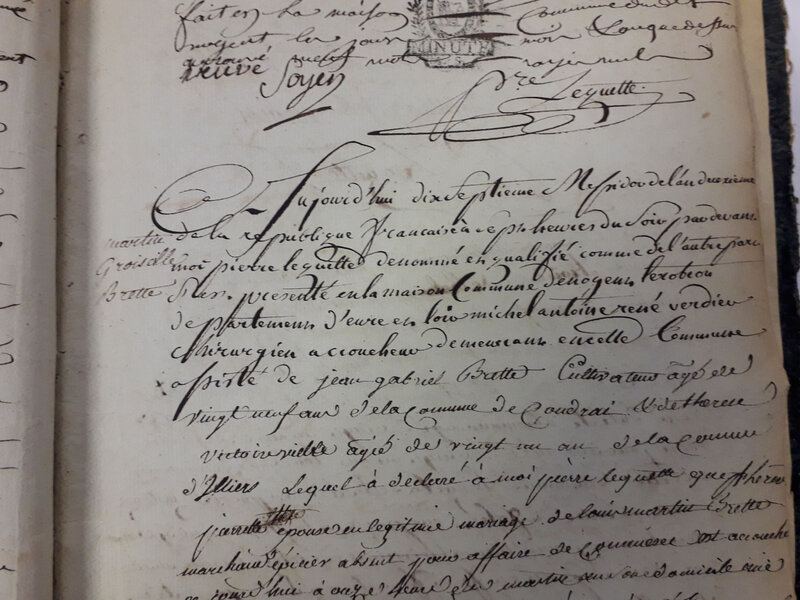 fait en la maison Commune dudit
nogent les jour mois
approuvé mot rayé nul
Soyer
pre Lequette
martin
Groiseille
Brette
Aujourd'hui dix Septieme Messidor de l'an deuxieme
de la republique francaise à Sept heures du Soir pardevant
moi pierre lequette denommé en qualifié comme de l'autre part
S'est presenté en la maison Commune de nogent le rotrou
departement d'eure en loir michel antoine rené verdier
Chirurgien accoucheur demeurant en cette Commune
assisté de jean gabriel Brette Cultivateur âgé de
vingt neuf ans de la Commune de Coudrai & de therese
victoire vieille âgée de vingt un an de la Commune
d'Illiers Lequel à declaré à moi pierre lequette que
épouse en legitime mariage de louis martin Brette
marchand épicier absent pour affaire de Commerce est accouchée
ce jourd'hui à onze heure du matin en son domicile